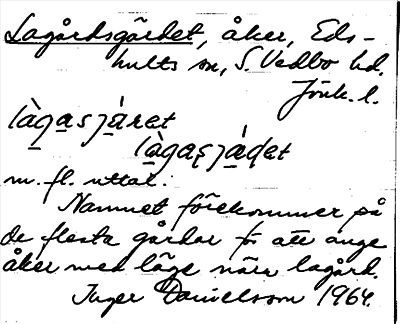 Lagårdsgärdet, åker, Eds-
hults sn, S. Vedbo hd.
Jönk. l.
làgasjǻret
làgaʂjǻḍet
m. fl. uttal.
Namnet förekommer på
de flesta gårdar för att ange
åker med läge nära lagård.
Inger Danielsson 1964.